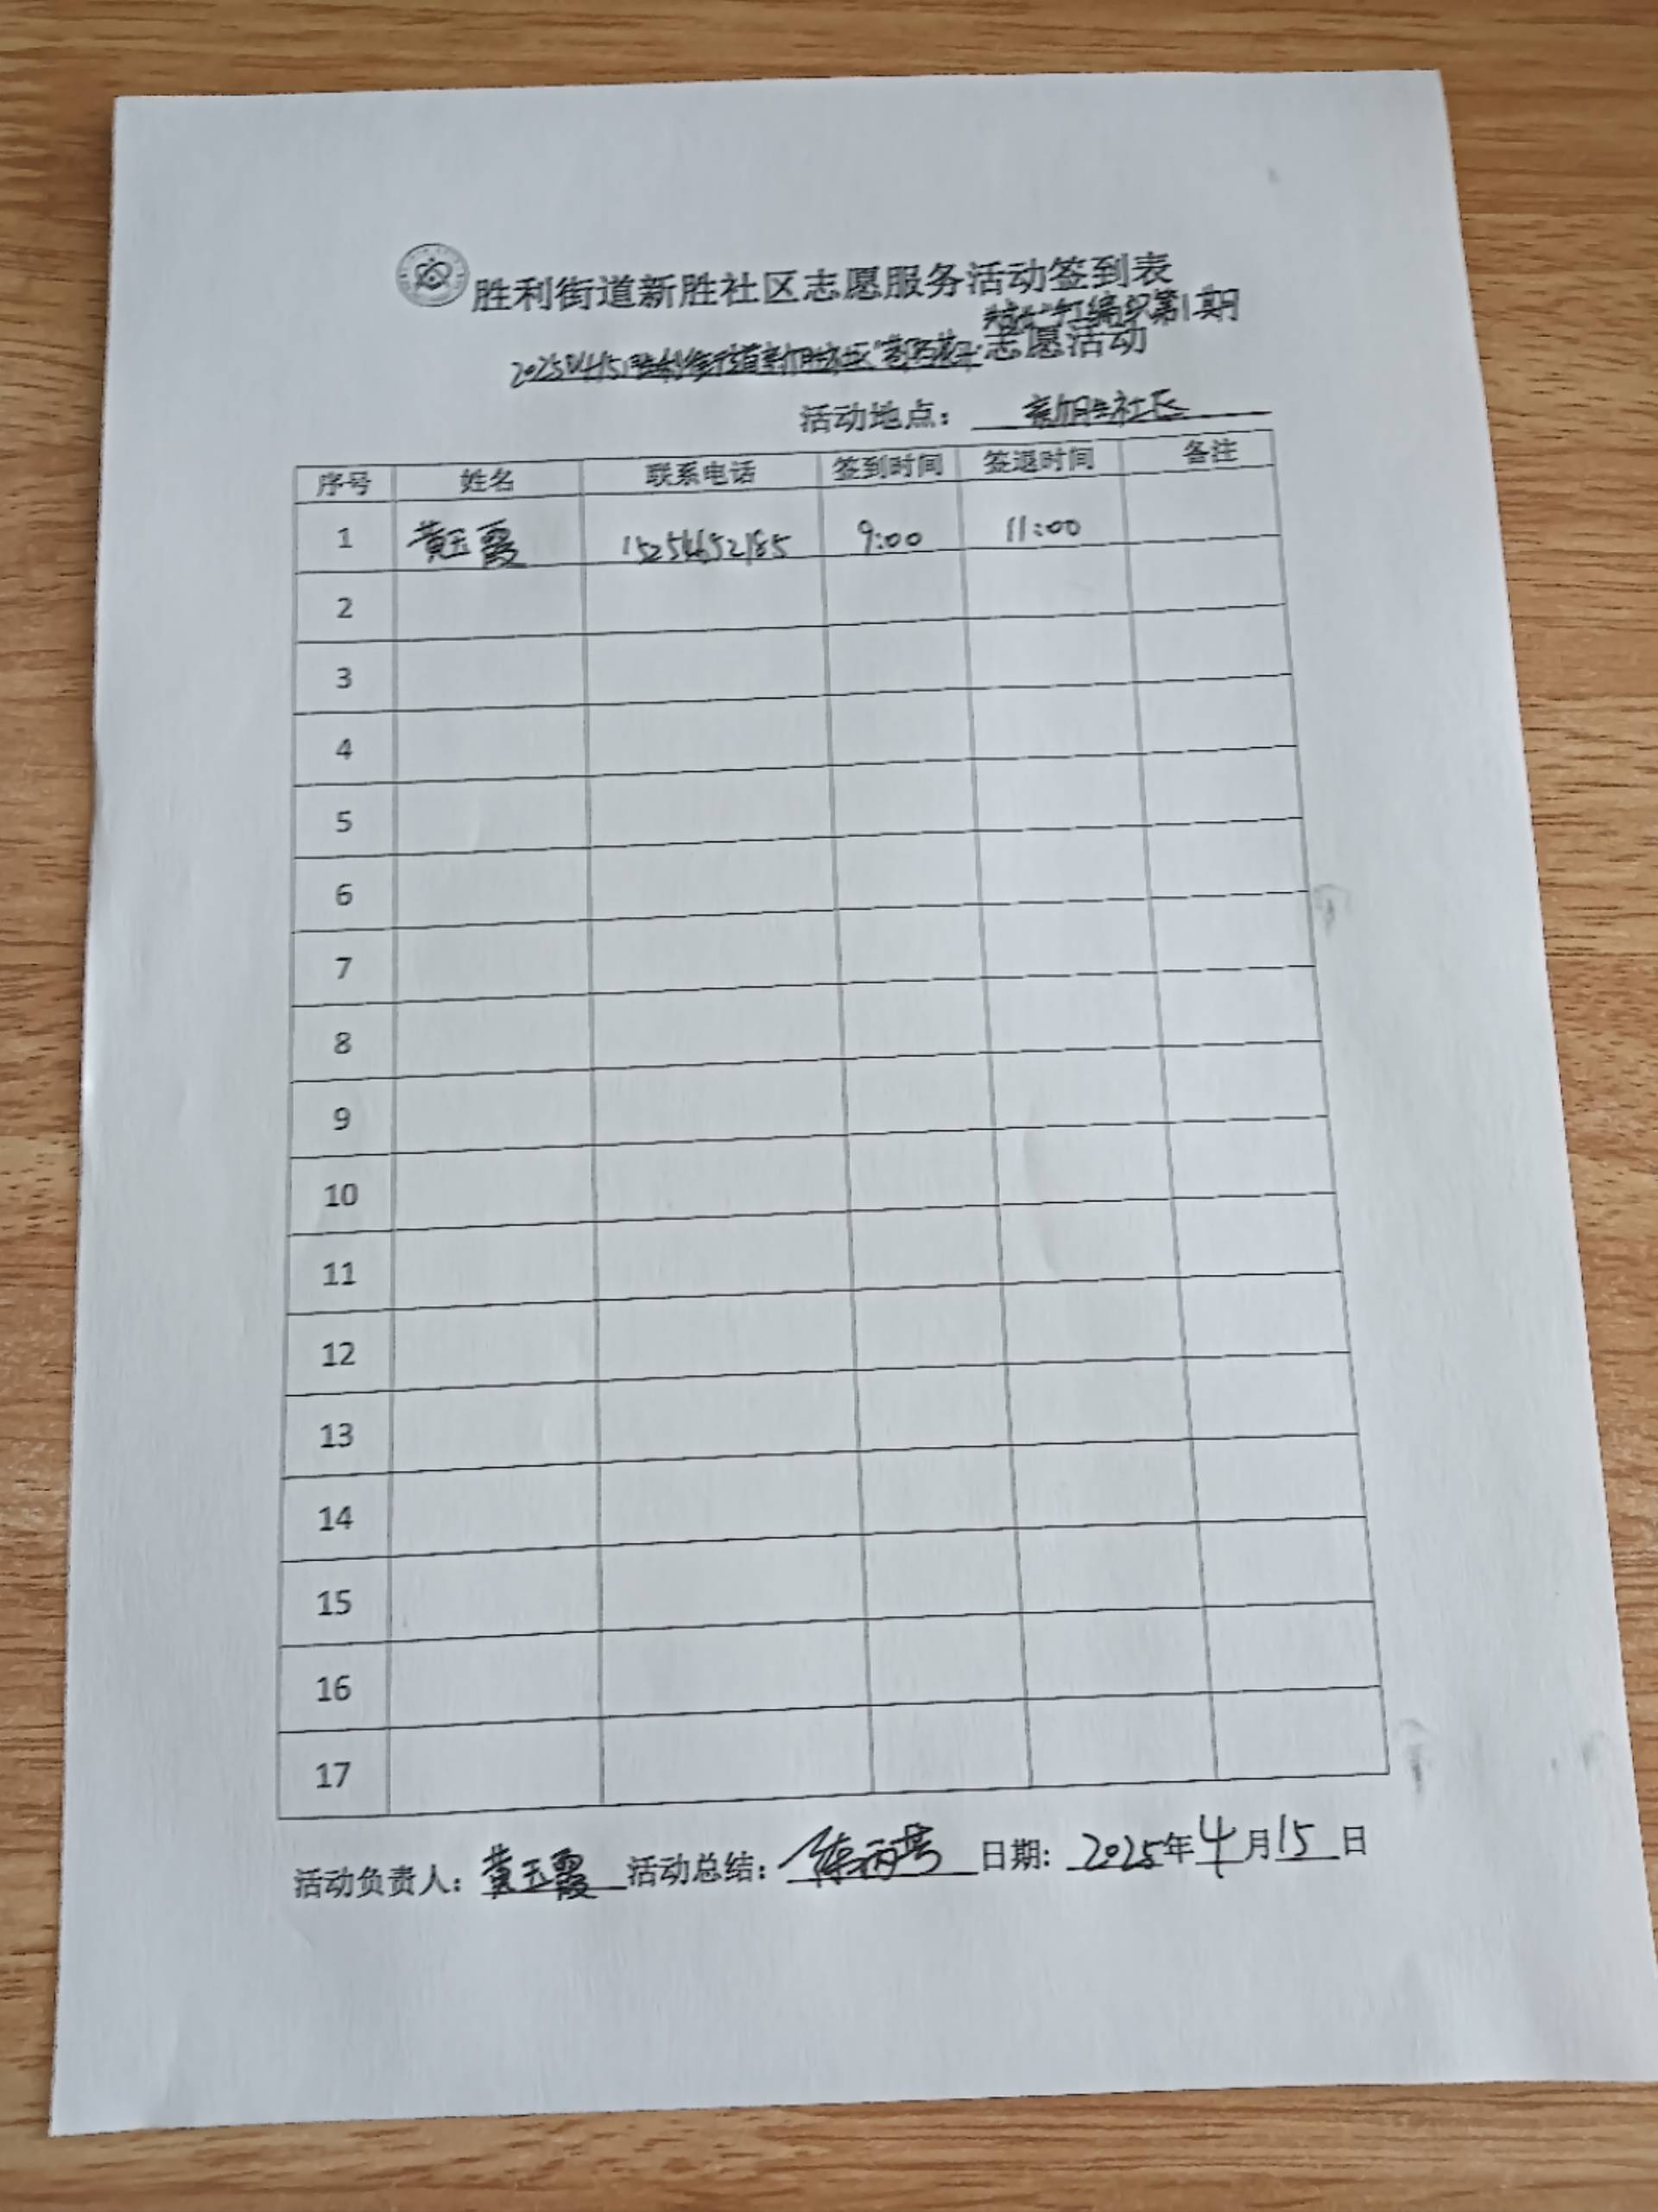 胜利街道新胜社区志愿服务活动签到表
编织第1期
20250415胜利街道新胜社区 志愿活动
活动地点: 新胜社区
序号 姓名 联系电话 签到时间 签退时间 备注
1 黄玉霞 15254652185 9:00 11:00
2
3
4
5
6
7
8
9
10
11
12
13
14
15
16
17
活动负责人: 黄玉霞 活动总结: 日期: 2025年4月15日